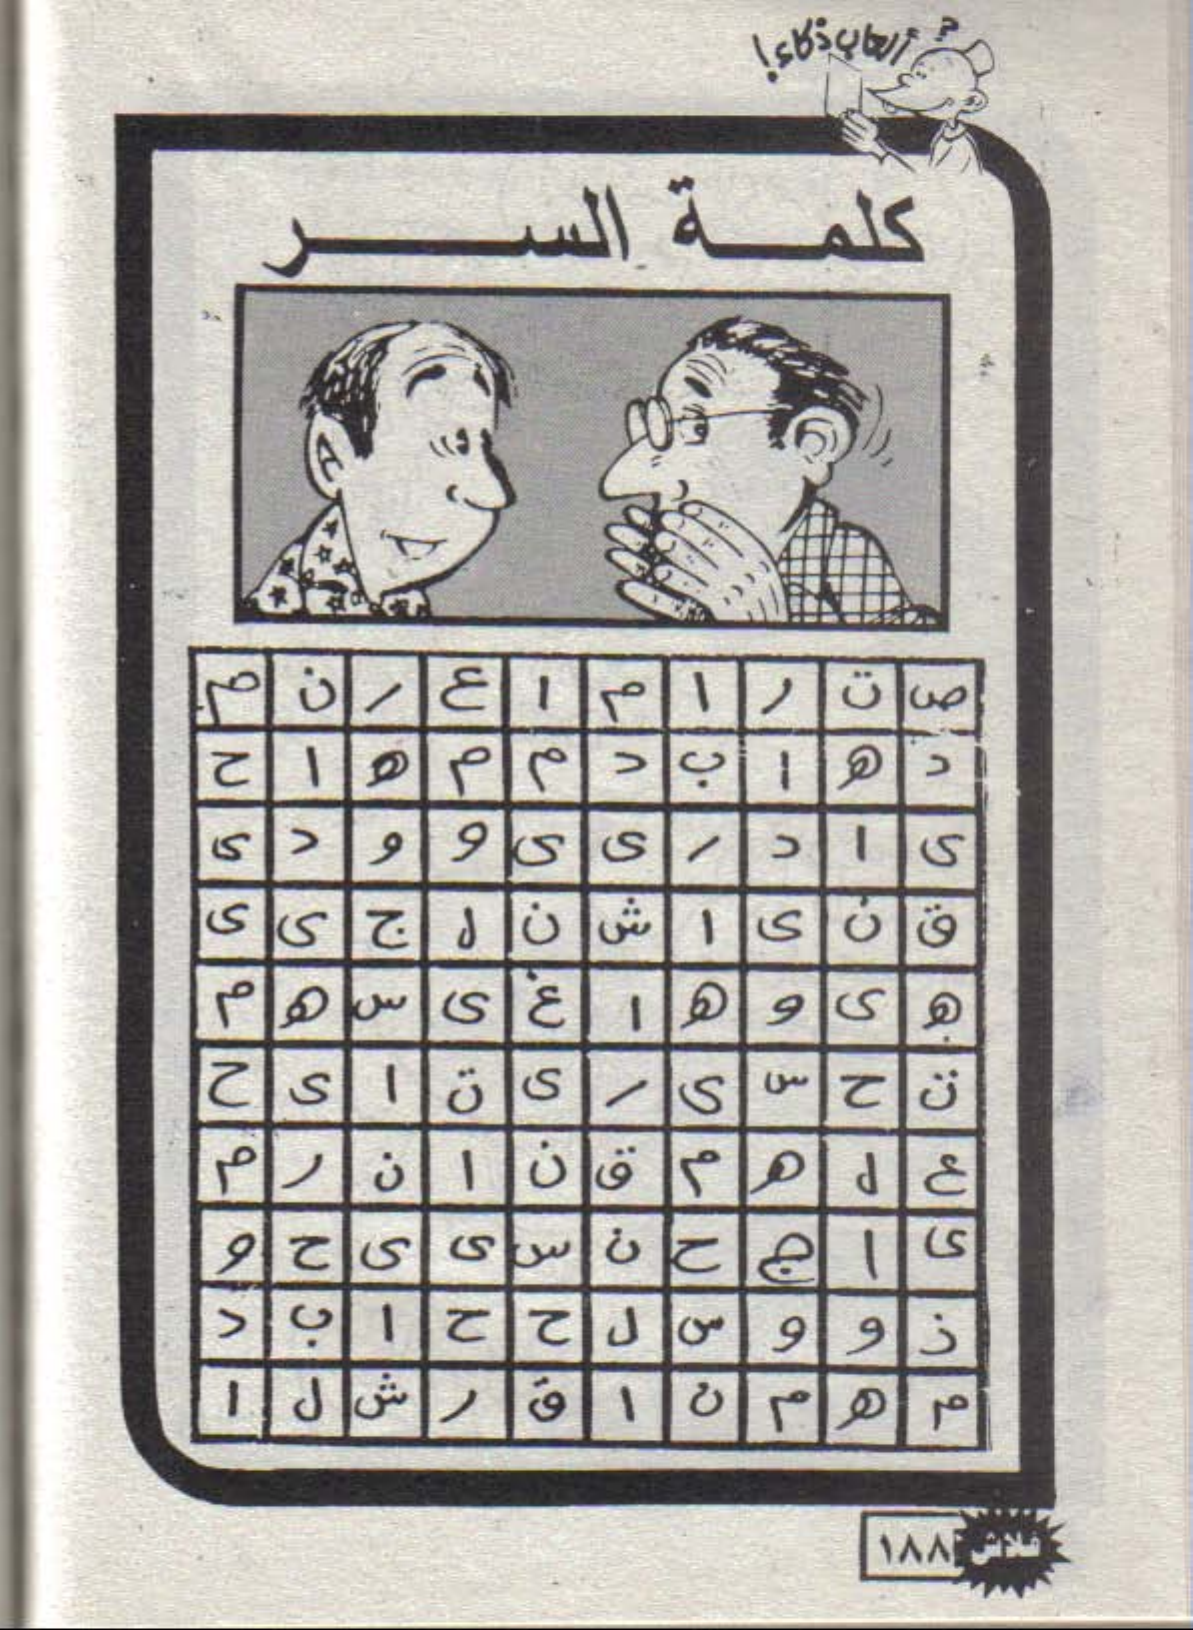 ألعاب ذكاء!
؟
كلمة السر
ص ت ر ا م ا ع ر ن م
د ه ا ب د م م ه ا ح
ى ا د ر ى ى و و د ى
ق ن ى ا ش ن ل ج ى ى
ه ى و ه ا غ ى س ه م
ت ح س ى ر ى ت ا ى ح
ع ل ه م ق ن ا ن ر م
ى ا ج ح ن س ى ى ح و
ذ و و س ل ح ح ا ب د
م ه م ن ا ق ر ش ل ا
فلاش ١٨٨